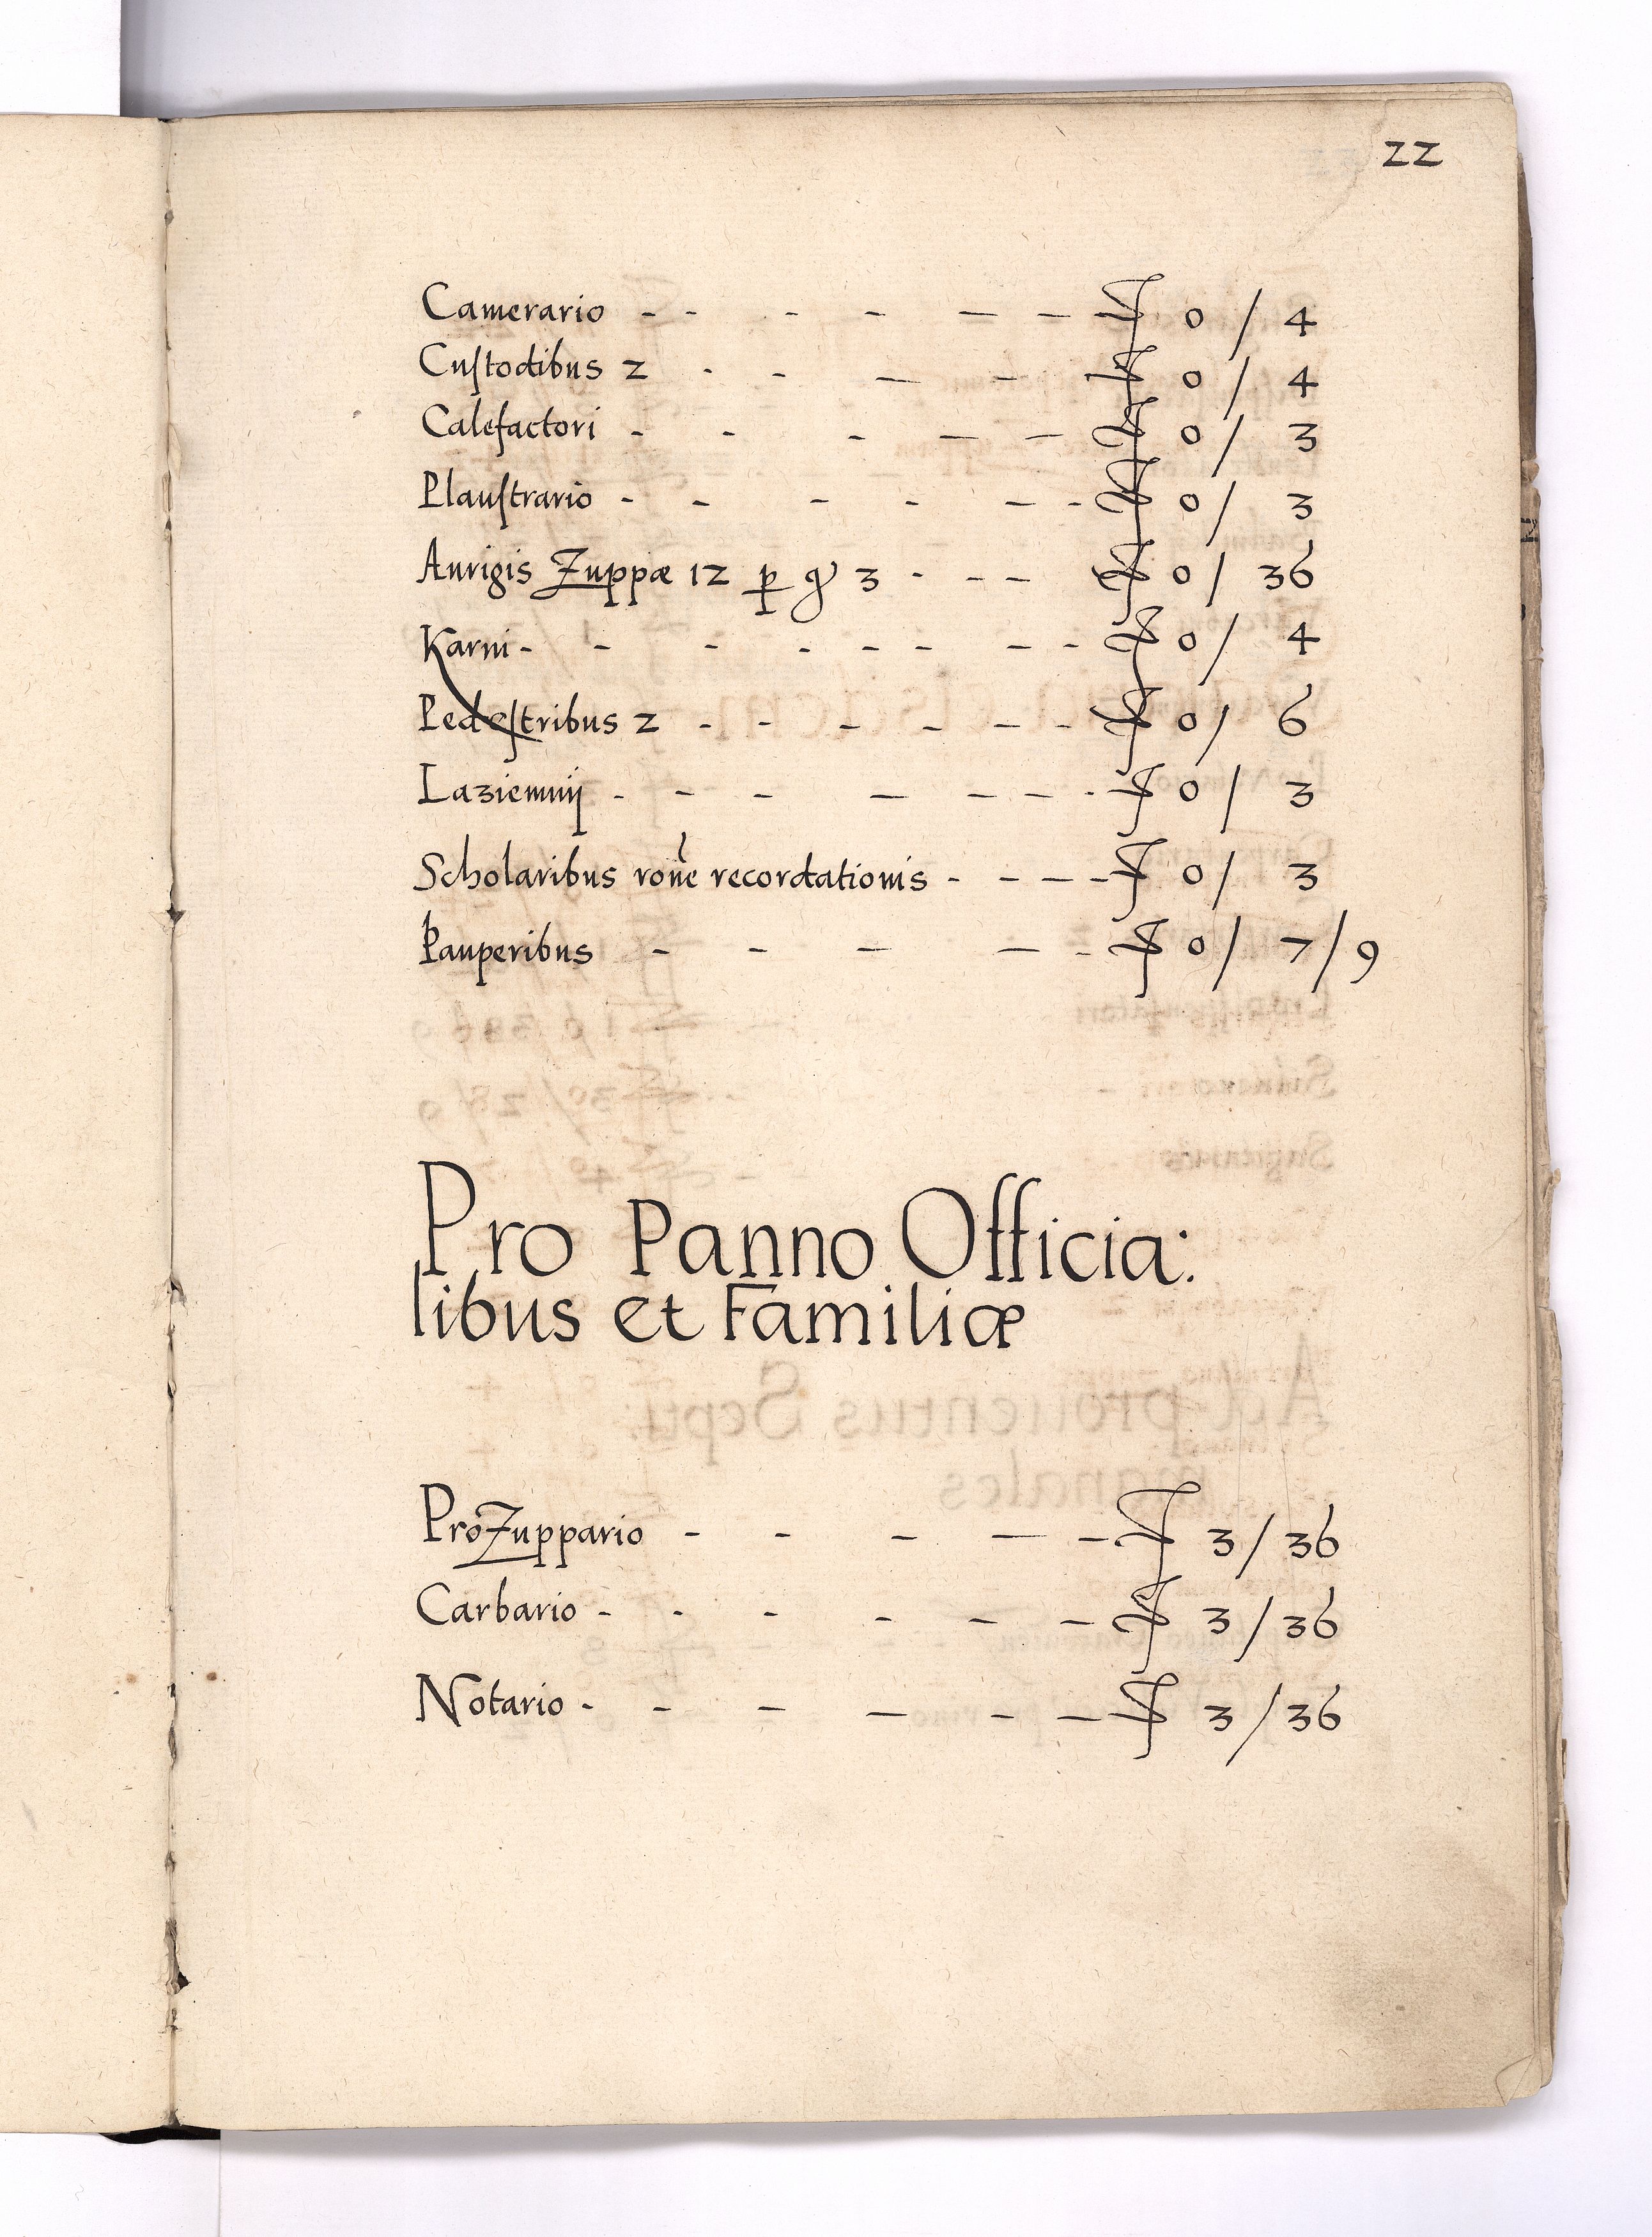 22
Camerario - - - - - - ƒ 0 / 4
Cuſtodibus 2 - - - - ƒ 0 / 4
Calefactori - - - - - ƒ 0 / 3
Plauſtrario - - - - - - ƒ 0 / 3
Aurigis Zuppæ 12 p gͬ 3 - - - ƒ 0 / 36
Karni - - - - - - - - ƒ 0 / 4
Pedeſtribus 2 - - - - - - ƒ 0 / 6
Laziennij - - - - - - - ƒ 0 / 3
Scholaribus rone recordationis - - - - ƒ 0 / 3
Pauperibus - - - - - ƒ 0 / 7 / 9
Pro Panno Officia:
libus et Familiæ
ProZuppario - - - - - ƒ 3 / 36
Carbario - - - - - - ƒ 3 / 36
Notario - - - - - - ƒ 3 / 36